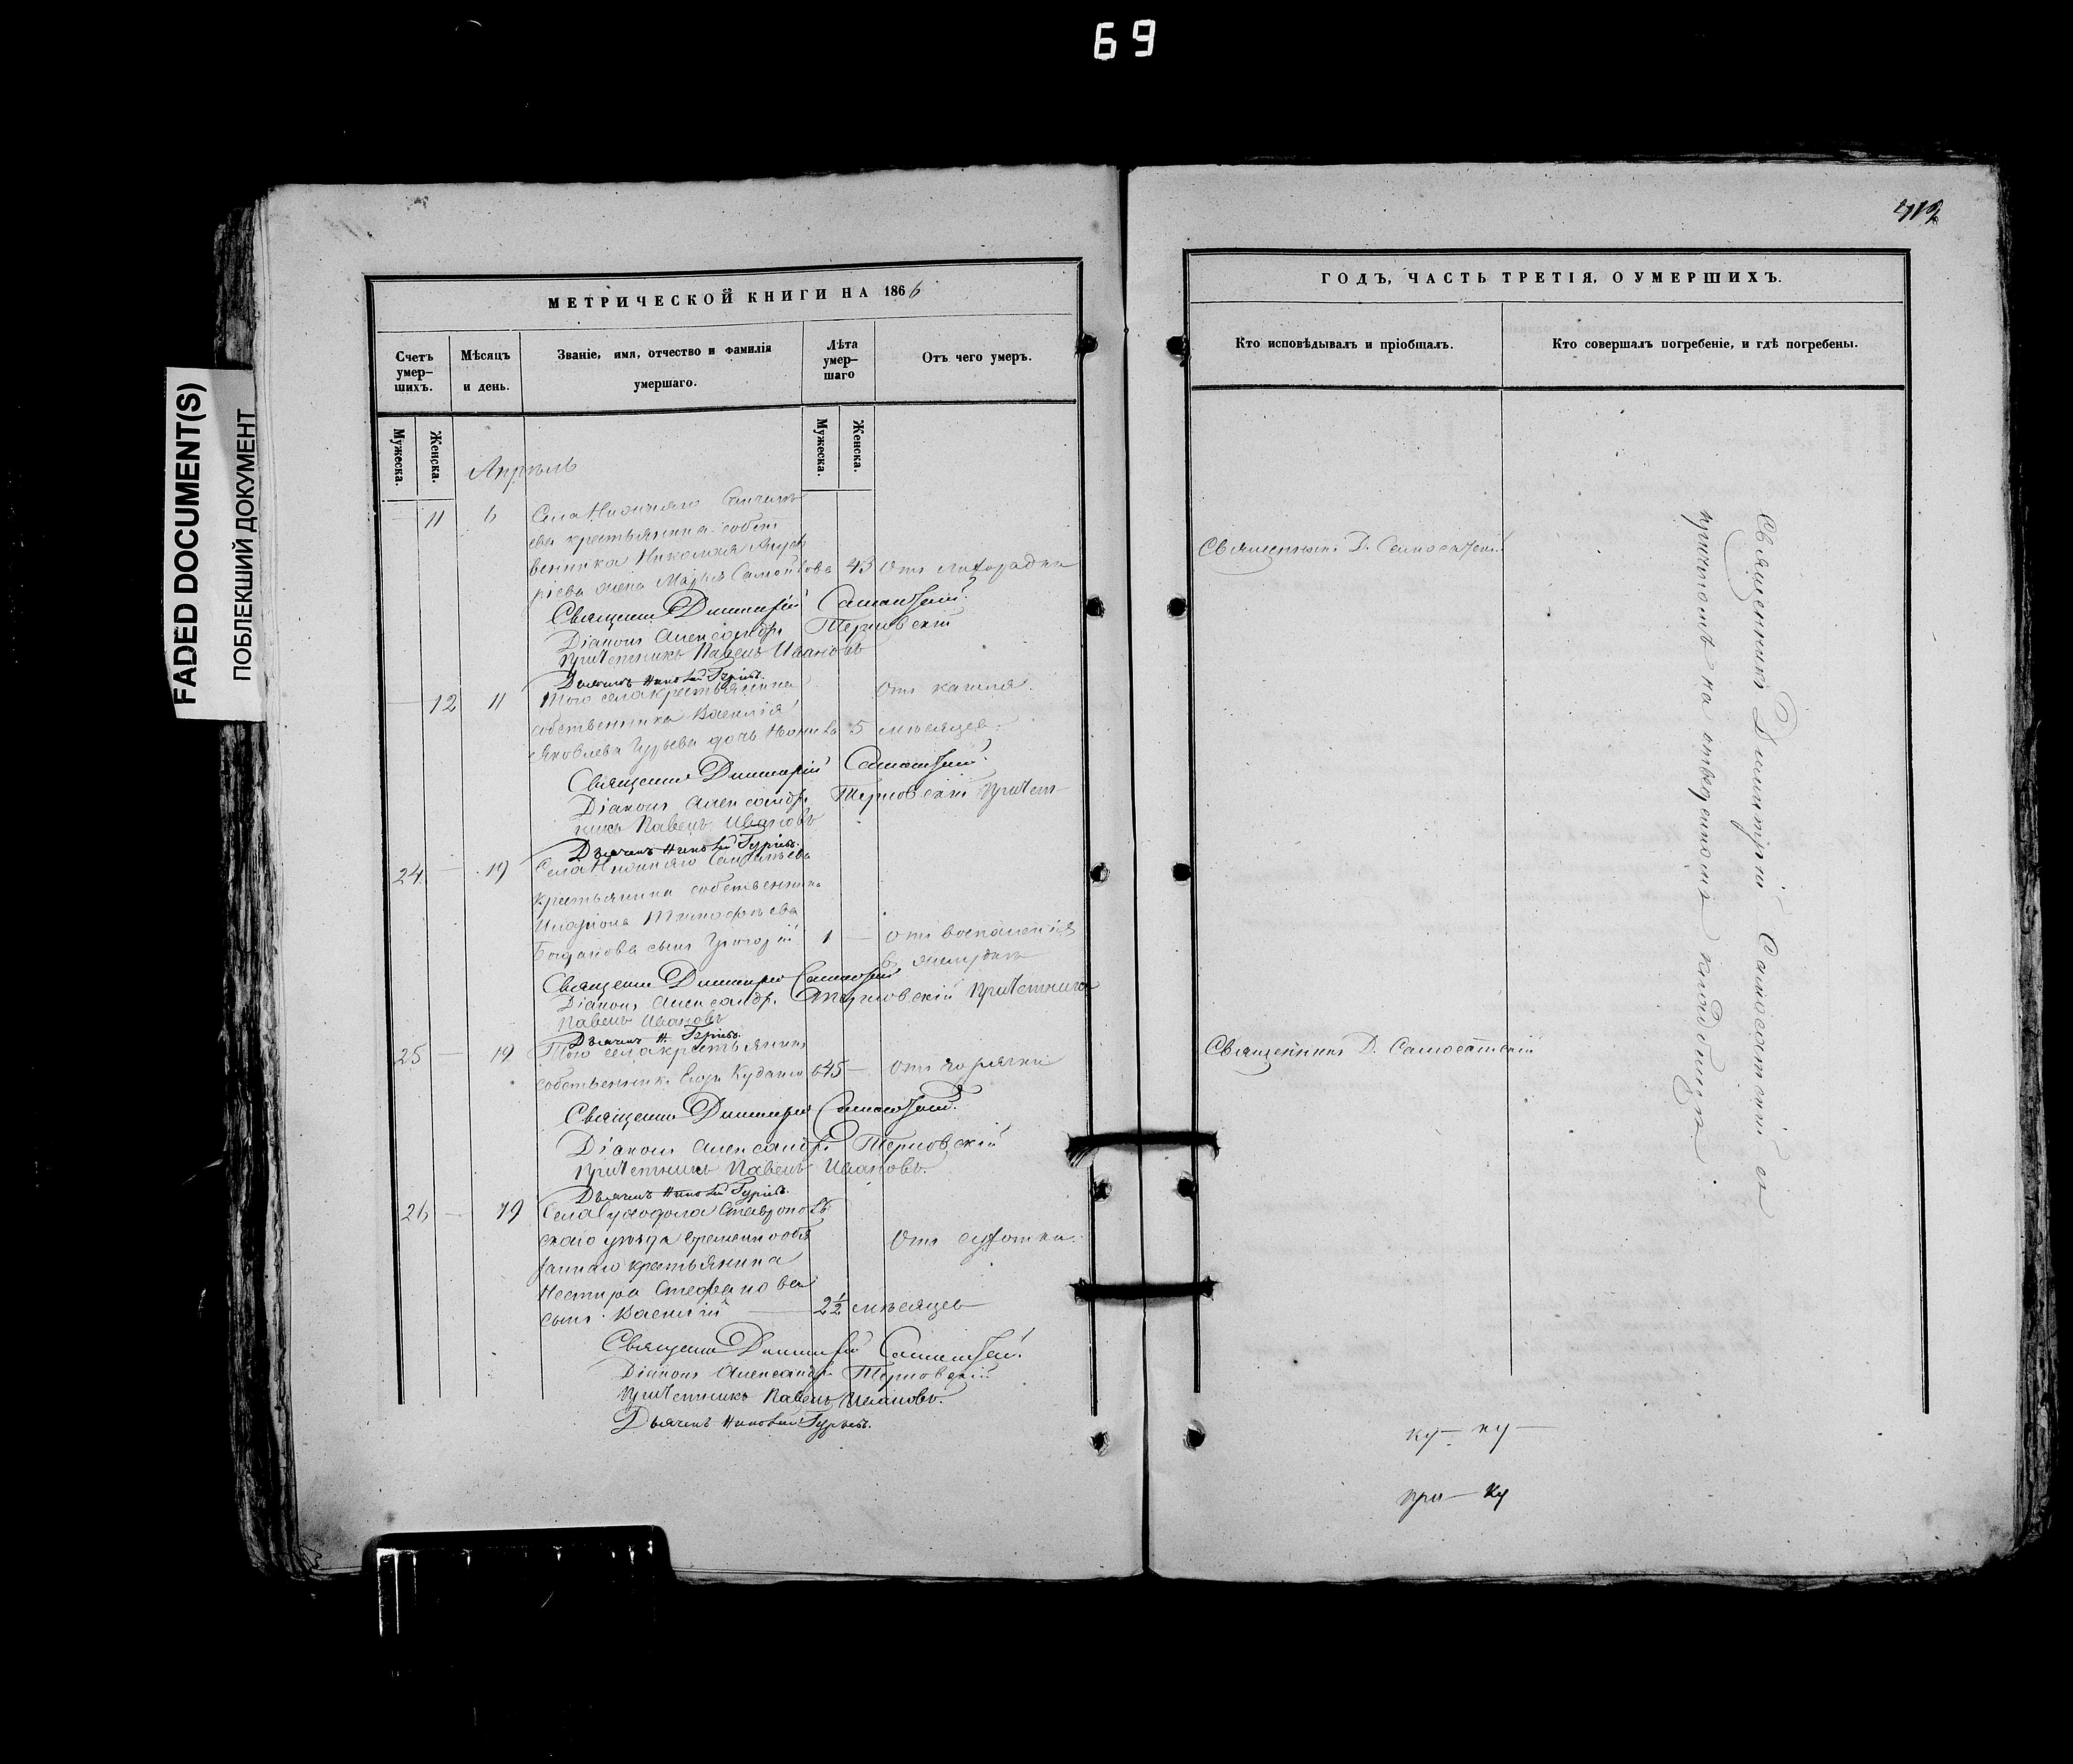 69
FADED DOCUMENT(S)
ПОБЛЕКШИЙ ДОКУМЕНТ
МЕТРИЧЕСКОЙ КНИГИ НА 1866
Счетъ умер-шихъ.
Мѣсяцъ и день.
Званіе, имя, отчество и фамилія умершаго.
Лѣта умер-шаго
Отъ чего умеръ.
Мужеска.
Женска.
Мужеска.
Женска.
Апрѣль
11 6 Села Нижняго
крестьянина собст
венника Николая Андре
жена Марья 43 Отъ лихорадки
Священникъ Димитрій Самосатскій.
Діаконъ Александръ Терновскій
Причетникъ Павелъ Ивановъ
Дьячекъ Николай Гурьевъ.
12 11 Того села крестьянина Отъ кашля.
собственника Василія
Яковлева Гурьева дочь 5 мѣсяцев.
Священникъ Димитрій Самосатскій.
Діаконъ Александръ Терновскій Причет
никъ Павелъ Ивановъ
Дьячекъ Николай Гурьевъ.
24 19 Села Нижняго
Крестьянина собственника
Иларіона Тимофѣева
сынъ Григорій 1 Отъ воспаленія
въ желудкѣ
Священникъ Димитрій Самосатскій
Діаконъ Александръ Терновскій Причетникъ
Павелъ Ивановъ
Дьячекъ Н. Гурьевъ.
25 19 Того села крестьянинъ
собственникъ Егоръ 45 Отъ горячки
Священникъ Димитрій Самосатскій.
Діаконъ Александръ Терновскій
Причетникъ Павелъ Ивановъ.
Дьячекъ Николай Гурьевъ.
26 19 Села Суходола Ставрополь
скаго уѣзда временнообя
заннаго крестьянина
Нестера Стефанова Отъ сухотки.
сынъ Василій 2½ мѣсяцев
Священникъ Димитрій Самосатскій.
Діаконъ Александръ Терновскій
Причетникъ Павелъ Ивановъ.
Дьячекъ Николай Гурьевъ.
ГОДЪ, ЧАСТЬ ТРЕТІЯ, О УМЕРШИХЪ.
Кто исповѣдывалъ и пріобщалъ.
Кто совершалъ погребеніе, и гдѣ погребены.
Священникъ Д. Самосатскій
Священникъ Д. Самосатскій
Священникъ Димитрій Самосатскій съ
причтомъ на отведенномъ кладбищѣ
ку— ку—
при— ку